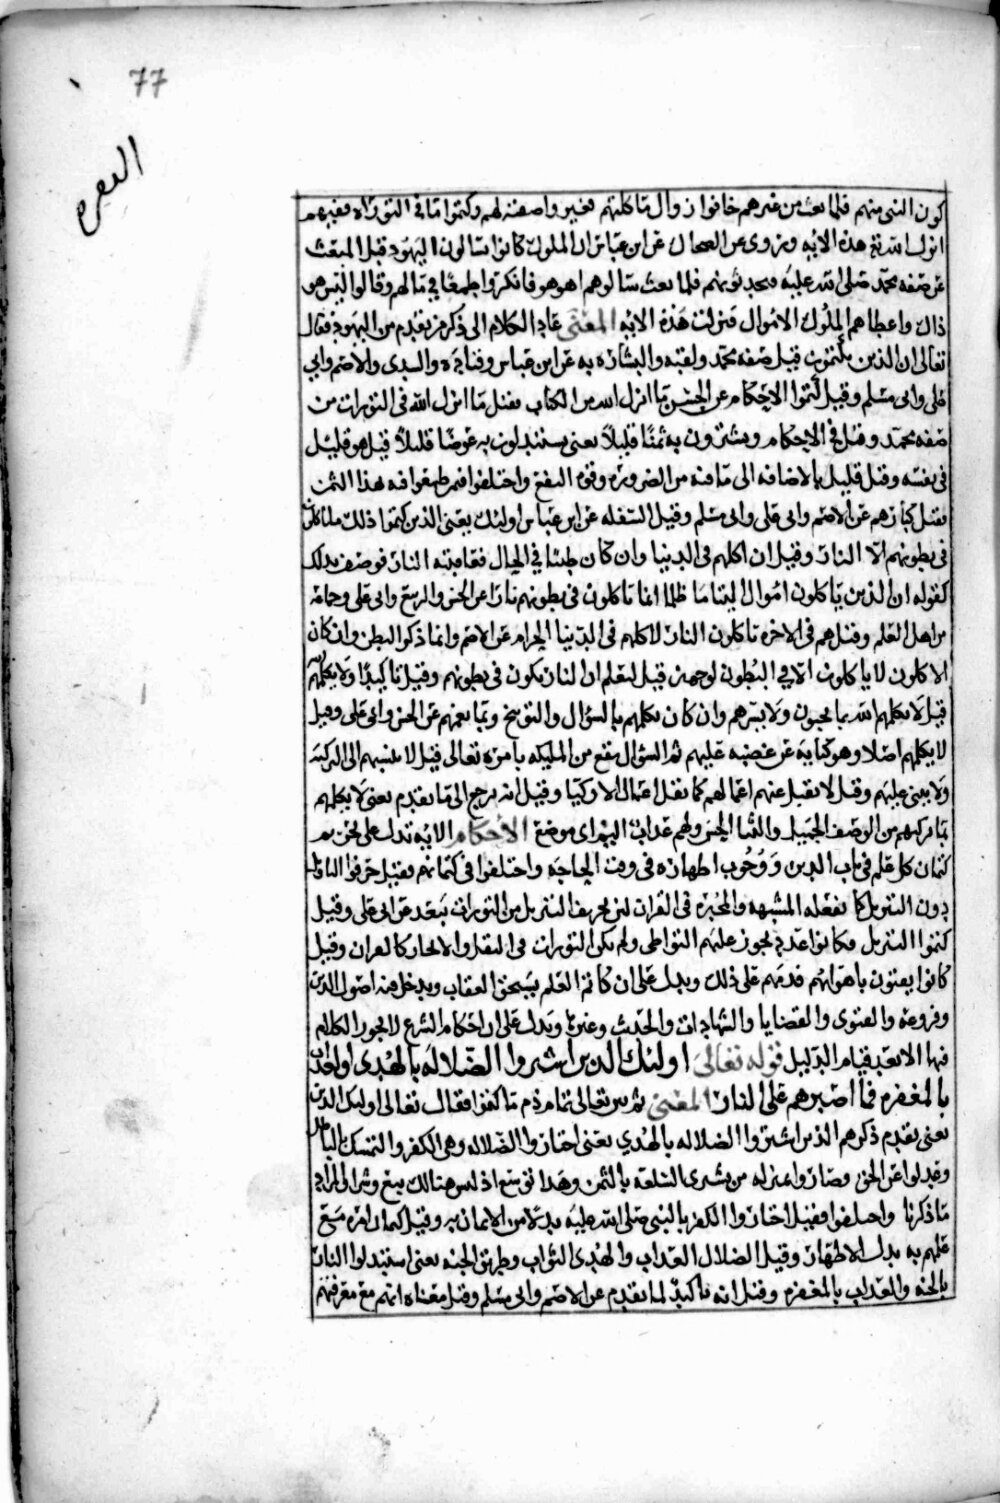 77
البقره
كون النبي منهم فلما بعث من غيرهم خافوا زوال ماكلتهم فغيروا صفته لهم وكتموا ما في التوراه ففيهم
انزل الله تعالى هذه الايه ويروى عن الضحاك عن ابن عباس ان الملوك كانوا يسالون اليهود قبل المبعث
عن صفه محمد صلى الله عليه فيحدثونهم فلما بعث سالوهم اهو هو فانكروا طمعا في مالهم وقالوا ليس هو
ذاك واعطاهم الملوك الاموال فنزلت هذه الايه المعنى عاد الكلام الى ذكر من تقدم من اليهود فقال
تعالى ان الذين يكتمون قيل صفه محمد ونعته والبشاره به عن ابن عباس وقتاده والسدي والاصم وابي
علي وابي مسلم وقيل كتموا الاحكام عن الحسن ما انزل الله من الكتاب فقيل ما انزل الله في التورات من
صفه محمد وقيل في الاحكام ويشترون به ثمنا قليلا يعني يستبدلون به عوضا قليلا قيل هو قليل
في نفسه وقيل قليل بالاضافه الى ما فيه من الضرر وفوت النفع واختلفوا فيمن طمعوا فيه هذا الثمن
فقيل كبارهم عن الاصم وابي علي وابي مسلم وقيل السفله عن ابن عباس اولئك يعني الذين كتموا ذلك ما ياكلون
في بطونهم الا النار وقيل ان اكلهم في الدنيا وان كان طيبا في الحال فعاقبته النار فوصف بذلك
كقوله ان الذين ياكلون اموال اليتاما ظلما انما ياكلون في بطونهم نارا عن الحسن والربيع وابي علي وجماعه
من اهل العلم وقيل هم في الاخره ياكلون النار لاكلهم في الدنيا الحرام عن الاصم وانما ذكر البطن وان كان
الاكلون لا ياكلون الا في البطون لوجهين قيل ليعلم ان النار تكون في بطونهم وقيل تاكيدا ولا يكلمهم الله
قيل لا يكلمهم الله بما يحبون ولا يسرهم وان كان يكلمهم بالسؤال والتوبيخ وبما يغمهم عن الحسن وابي علي وقيل
لا يكلمهم اصلا وهو كنايه عن غضبه عليهم ثم السؤال يقع من المليكه بامره تعالى قيل لا ينسبهم الى التزكيه
ولا يثني عليهم وقيل لا يقبل عنهم اعمالهم كما يقبل اعمال الازكيا وقيل انه يرجع الى ما تقدم يعني لا يكلمهم
بما يزكيهم من الوصف الجميل والثنا الحسن ولهم عذاب اليم اي موجع الاحكام الايه تدل على تحريم
كتمان كل علم في باب الدين ووجوب اظهاره في وقت الحاجه واختلفوا في كتمانهم فقيل حرفوا التاويل
دون التنزيل كما تفعله المشبهه والمجبره في القران لان تحريف التنزيل من التورات يبعد عن ابي علي وقيل
كتموا التنزيل فكانوا عدد يجوز عليهم التواطي ولم يكن التورات في النقل والاعجاز كالقران وقيل
كانوا يفتون باهوائهم فذمهم على ذلك ويدل على ان كاتم العلم يستحق العقاب ويدخل فيه اصول الدين
وفروعه والفتوى والقضايا والشهادات والحديث وغيره ويدل على ان احكام الشرع لا يجوز الكلام
فيها الا بعد قيام الدليل قوله تعالى اولئك الذين اشتروا الضلالة بالهدى والعذاب
بالمغفرة فما اصبرهم على النار المعنى ثم بين تعالى تمام ذم ما كتموا فقال تعالى اولئك الذين
يعني تقدم ذكرهم الذين اشتروا الضلاله بالهدي يعني اختاروا الضلاله وهي الكفر والتمسك بالباطل
وعدلوا عن الحق فصاروا بمنزله من يشتري السلعه بالثمن وهذا توسع اذ ليس هنالك بيع وشرا والمراد
ما ذكرنا واختلفوا فقيل اختاروا الكفر بالنبي صلى الله عليه بدلا من الايمان به وقيل كتمان امره مع
علمهم به بدل الاظهار وقيل الضلال العذاب والهدى الثواب وطريق الجنه يعني استبدلوا النار
بالجنه والعذاب بالمغفره وقيل انه تاكيد لما تقدم عن الاصم وابي مسلم وقيل معناه انهم مع معرفتهم